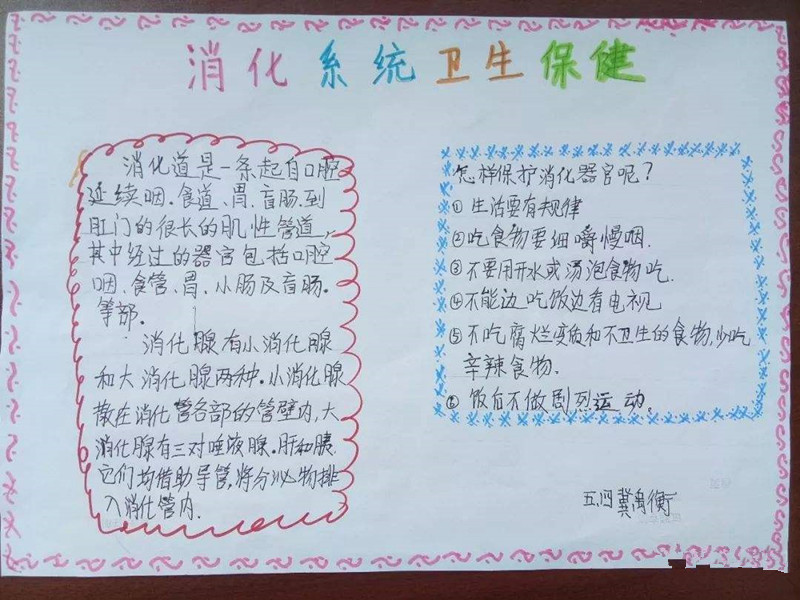 消化系统卫生保健
消化道是一条起自口腔
延续咽.食道、胃.盲肠.到
肛门的很长的肌性管道,
其中经过的器官包括口腔
咽、食管、胃、小肠及盲肠.
等部.
消化腺有小消化腺
和大消化腺两种.小消化腺
散在消化管各部的管壁内,大
消化腺有三对唾液腺.肝和胰
它们均借助导管,将分泌物排
入消化管内.
怎样保护消化器官呢?
①生活要有规律
②吃食物要细嚼慢咽.
③不要用开水或汤泡食物吃.
④不能边吃饭边看电视
⑤不吃腐烂变质和不卫生的食物,少吃
辛辣食物.
⑥饭后不做剧烈运动.
五.四冀禹衡